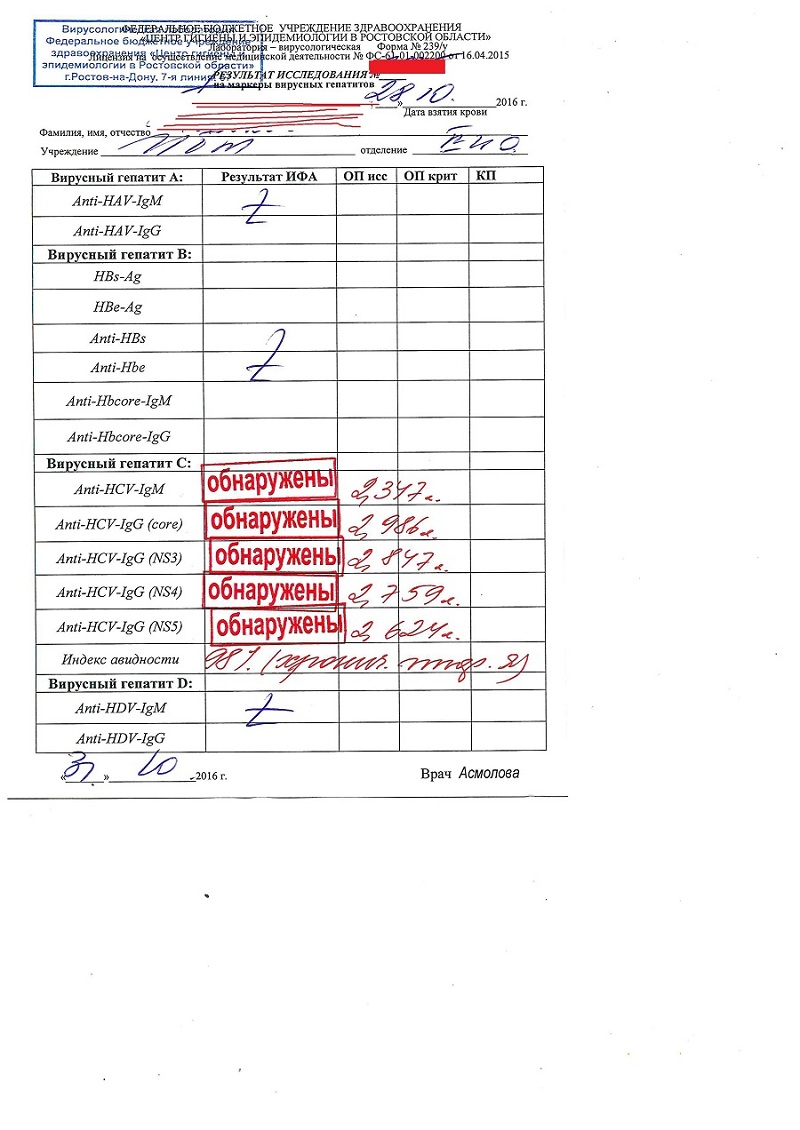 Вирусологическая
Федеральное бюджетное учреждение
здравоохранения «Центр гигиены и
эпидемиологии в Ростовской области»
г.Ростов-на-Дону, 7-я линия, 67
ФЕДЕРАЛЬНОЕ БЮДЖЕТНОЕ УЧРЕЖДЕНИЕ ЗДРАВООХРАНЕНИЯ
«ЦЕНТР ГИГИЕНЫ И ЭПИДЕМИОЛОГИИ В РОСТОВСКОЙ ОБЛАСТИ»
Лаборатория – вирусологическая Форма № 239/у
Лицензия на осуществление медицинской деятельности № ФС-61-01-002200 от 16.04.2015
РЕЗУЛЬТАТ ИССЛЕДОВАНИЯ №
на маркеры вирусных гепатитов
28 » 10. 2016 г.
Дата взятия крови
Фамилия, имя, отчество
Учреждение отделение
Вирусный гепатит А: Результат ИФА ОП исс ОП крит КП
Anti-HAV-IgM
Anti-HAV-IgG
Вирусный гепатит В:
HBs-Ag
HBe-Ag
Anti-HBs
Anti-Hbe
Anti-Hbcore-IgM
Anti-Hbcore-IgG
Вирусный гепатит С:
Anti-HCV-IgM обнаружены 2,347
Anti-HCV-IgG (core) обнаружены 2,986
Anti-HCV-IgG (NS3) обнаружены 2,847
Anti-HCV-IgG (NS4) обнаружены 2,759
Anti-HCV-IgG (NS5) обнаружены 2,624
Индекс авидности 98%
Вирусный гепатит D:
Anti-HDV-IgM
Anti-HDV-IgG
«31» 10 2016 г. Врач Асмолова